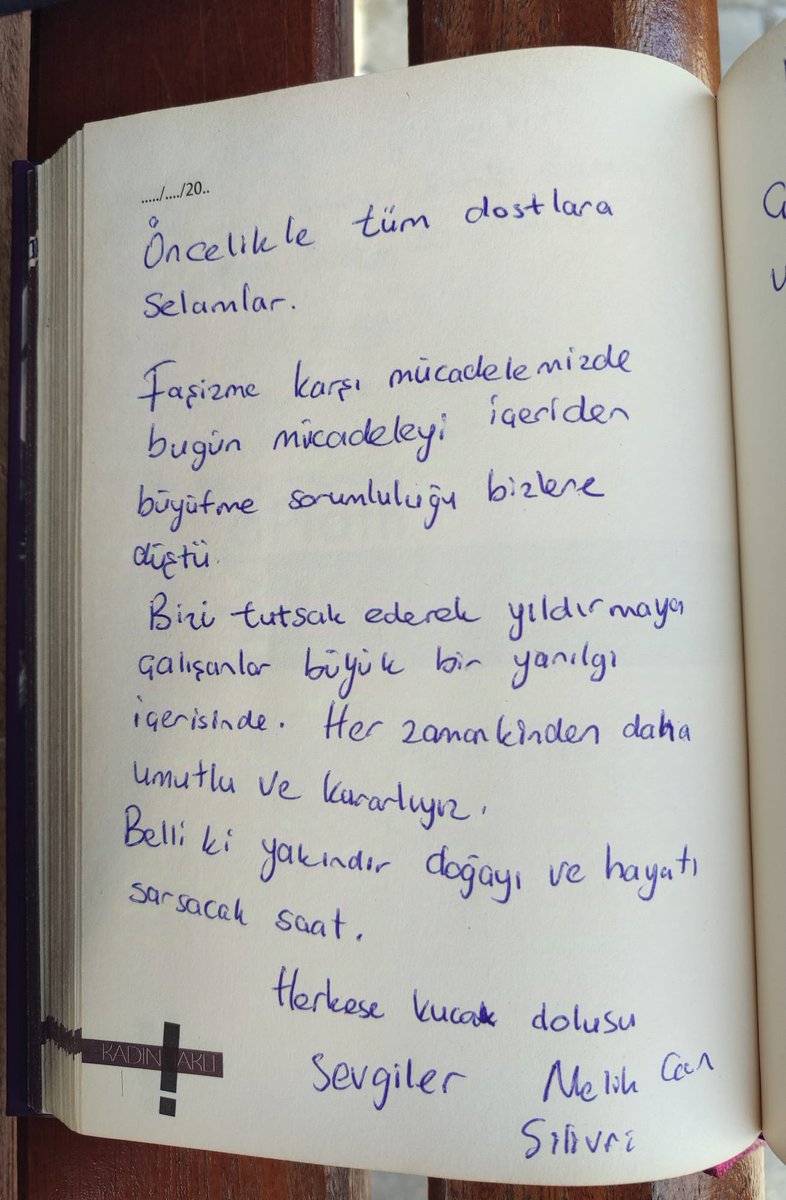 ...../..../20..
Öncelikle tüm dostlara
Selamlar.
Faşizme karşı mücadelemizde
bugün mücadeleyi içeriden
büyütme sorumluluğu bizlere
düştü.
Bizi tutsak ederek yıldırmaya
çalışanlar büyük bir yanılgı
içerisinde. Her zamankinden daha
umutlu ve kararlıyız.
Belli ki yakındır doğayı ve hayatı
sarsacak saat.
Herkese kucak dolusu
Sevgiler Melih Can
Silivri
KADIN AKLI